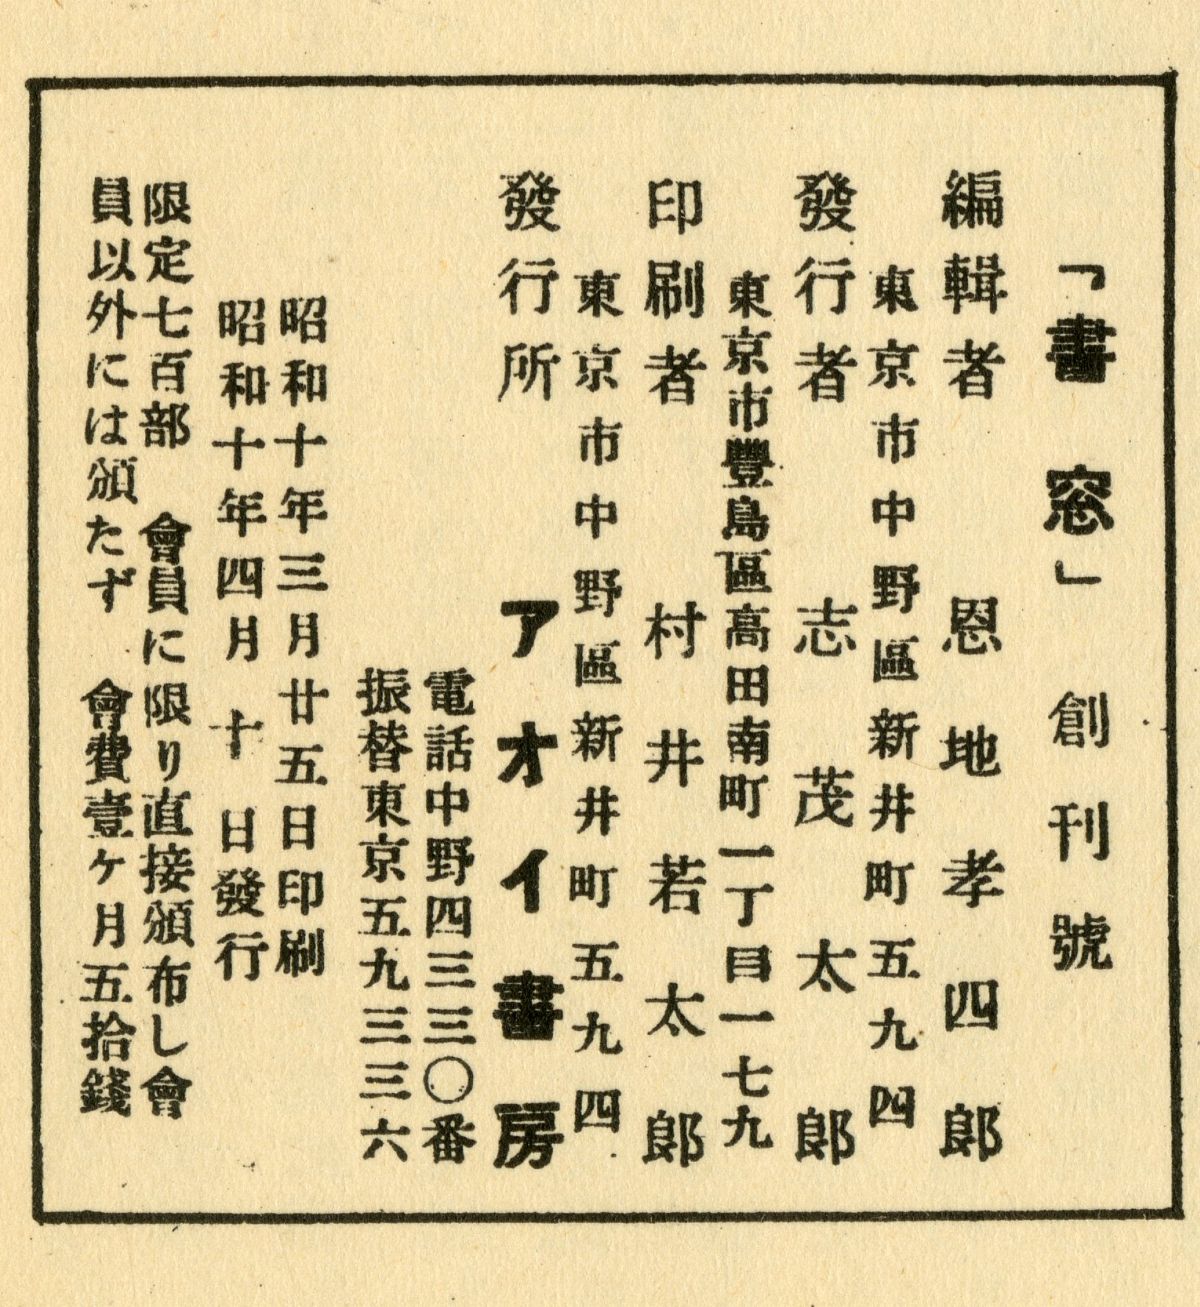 「書窓」創刊號
編輯者 恩地孝四郎
東京市中野區新井町五九四
發行者 志茂太郎
東京市豐島區高田南町一丁目一七九
印刷者 村井若太郎
東京市中野區新井町五九四
發行所 アオイ書房
電話中野四三三〇番
振替東京五九三三六
昭和十年三月廿五日印刷
昭和十年四月十日發行
限定七百部 會員に限り直接頒布し會
員以外には頒たず 會費壹ヶ月五拾錢